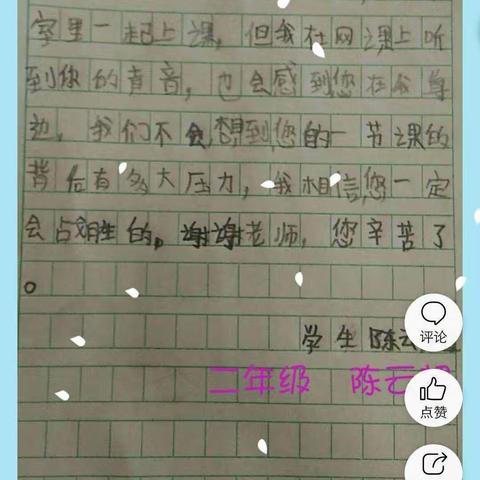 室里一起上课，但我在网课上听
到您的声音，也会感到您在我身
边，我们不会想到您的一节课的
背后有多大压力，我相信您一定
会占胜的。谢谢老师，您辛苦了
。
学生 陈云
二年级 陈云
评论
点赞